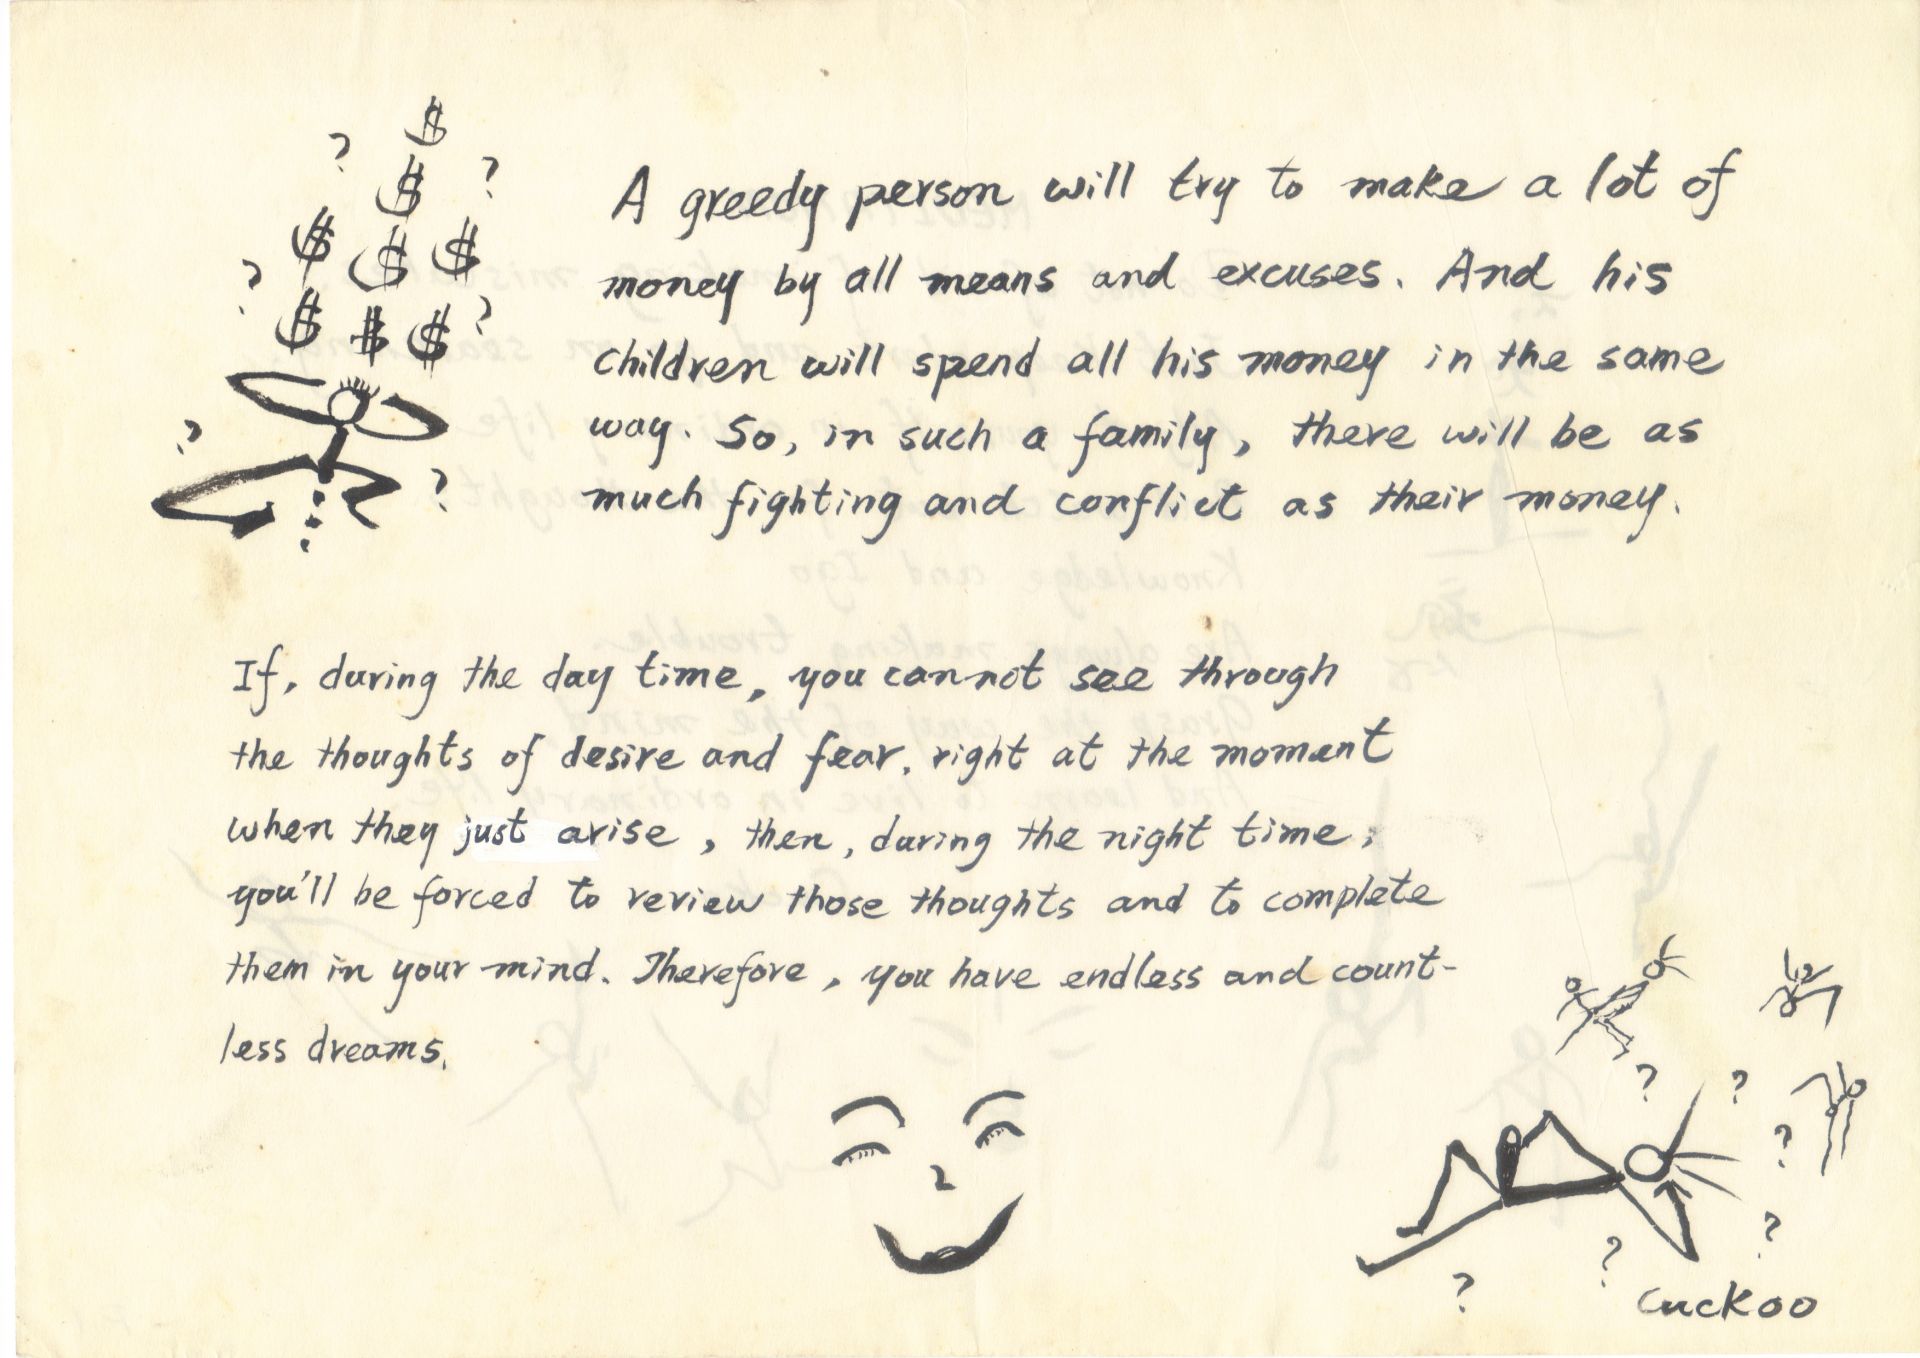 $
? $ ?
$ $ $
?
$ $ $ ?
?
?
A greedy person will try to make a lot of
money by all means and excuses. And his
children will spend all his money in the same
way. So, in such a family, there will be as
much fighting and conflict as their money.
If, during the day time, you cannot see through
the thoughts of desire and fear, right at the moment
when they just arise, then, during the night time,
you'll be forced to review those thoughts and to complete
them in your mind. Therefore, you have endless and count-
less dreams.
? ?
?
?
?
?
Cuckoo